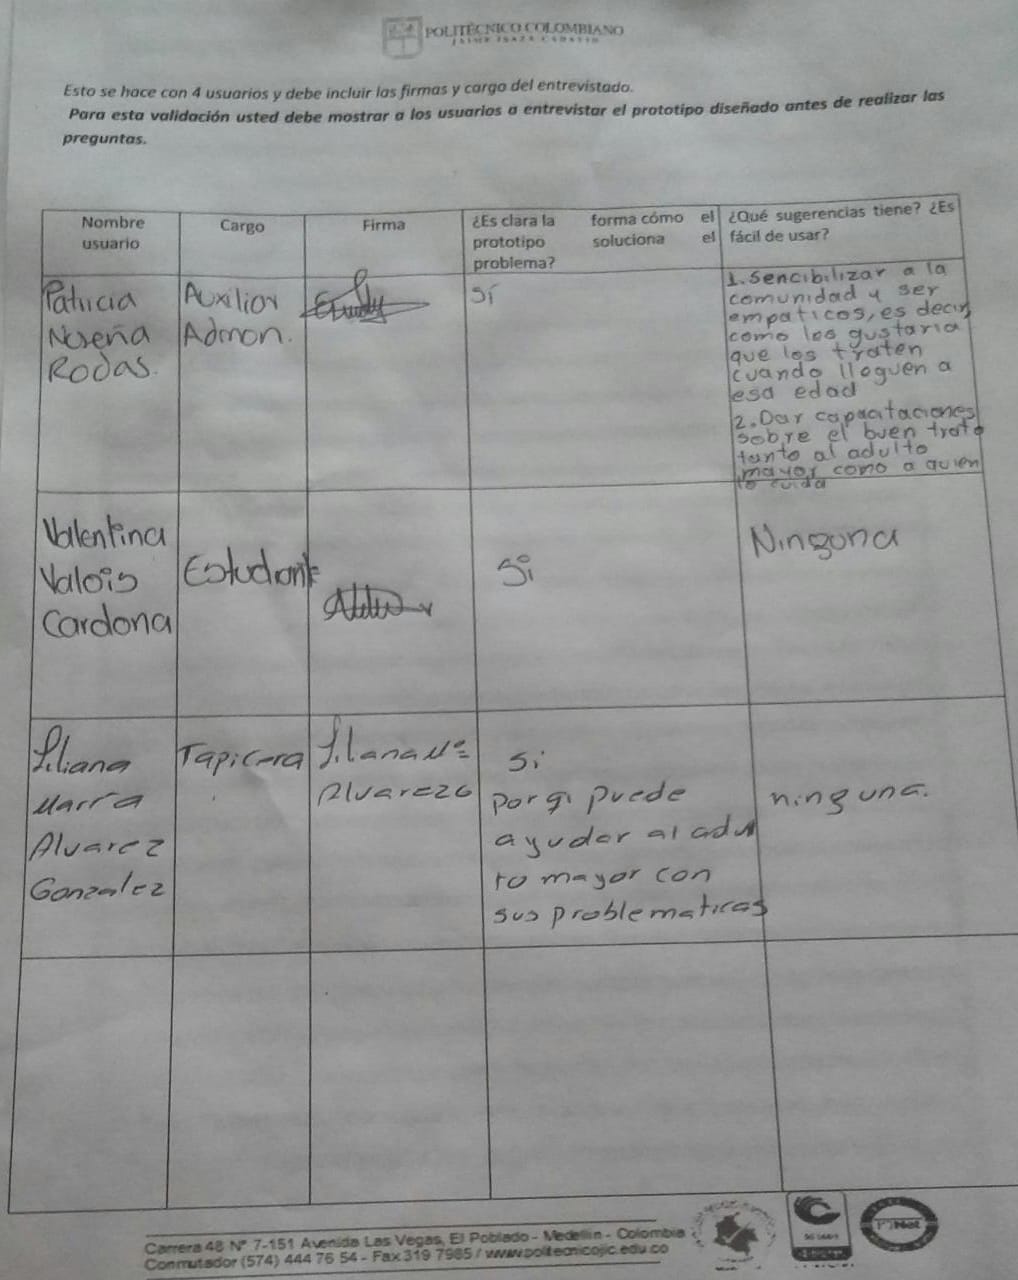 POLITÉCNICO COLOMBIANO
JAIME ISAZA CADAVID
Esto se hace con 4 usuarios y debe incluir las firmas y cargo del entrevistado.
Para esta validación usted debe mostrar a los usuarios a entrevistar el prototipo diseñado antes de realizar las
preguntas.
Nombre
usuario
Cargo
Firma
¿Es clara la forma cómo el
prototipo soluciona el
problema?
¿Qué sugerencias tiene? ¿Es
fácil de usar?
Patricia
Noreña
Rodas.
Auxiliar
Admon.
Sí
1. Sencibilizar a la
comunidad y ser
empaticos, es decir,
como les gustaria
que los traten
cuando lleguen a
esa edad
2. Dar capacitaciones
sobre el buen trato
tanto al adulto
mayor como a quien
lo cuida
Valentina
Valois
Cardona
Estudiante
Si
Ninguna
Liliana
María
Alvarez
Gonzalez
Tapicera
Liliana Mª
Alvarez G
Si
porq puede
ayudar al adul
to mayor con
sus problematicas
ninguna.
Carrera 48 N° 7-151 Avenida Las Vegas, El Poblado - Medellín - Colombia
Conmutador (574) 444 76 54 - Fax 319 7985 / www.politecnicojic.edu.co
IQNet